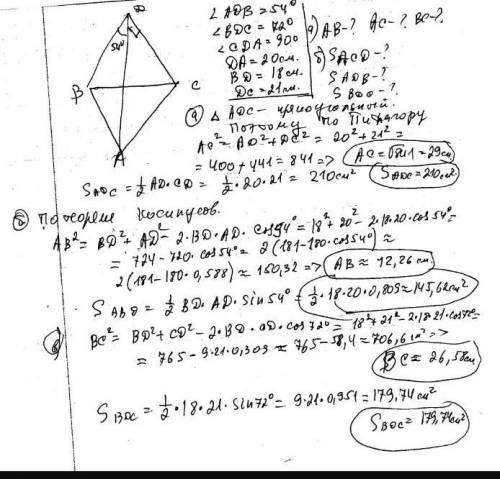 D
54°
B
C
A
∠ADB = 54°
∠BDC = 72°
∠CDA = 90°
DA = 20см.
BD = 18см.
DC = 21см.
а) AB-? AC-? BC-?
б) SACD-?
SADB-?
SBDC-?
а) △ ADC - прямоугольный.
Поэтому по Пифагору
AC² = AD² + DC² = 20² + 21² =
= 400 + 441 = 841 => AC = √841 = 29см
SADC = 1/2 AD · CD = 1/2 · 20 · 21 = 210см² SADC = 210см²
б) По теореме косинусов.
AB² = BD² + AD² - 2·BD·AD·cos54° = 18² + 20² - 2·18·20·cos54° =
= 724 - 720·cos54° = 2(181-180·cos54°) ≈
2(181-180·0,588) ≈ 150,32 => AB ≈ 12,26см
SABD = 1/2 BD·AD·sin54° = 1/2·18·20·0,809 ≈ 145,62см²
BC² = BD² + CD² - 2·BD·CD·cos72° = 18² + 21² - 2·18·21·cos72° =
= 765 - 9·21·0,309 ≈ 765 - 58,4 = 706,6см² =>
BC ≈ 26,58см
SBDC = 1/2·18·21·sin72° = 9·21·0,951 = 179,74см²
SBDC = 179,74см²